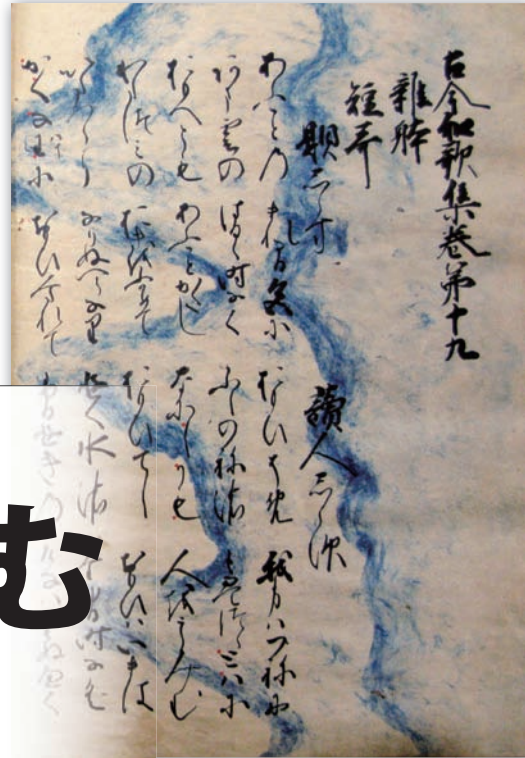 古今和歌集巻第十九
雑躰
短哥
題しらす　讀人しらす
あふことの　まれなる色に　おもひそめ　我身はつねに
あま雲の　はるゝ時なく　ふしの祢の　もえつゝとはに
おもへとも　あふことかたし　なにしかも　人をうらみむ
わたつみの　おきをふかめて　おもひてし　おもひはいまは
いたつらに　なりぬへらなり　ゆく水の　たゆる時なく
かくなわに　おもひみたれて
む